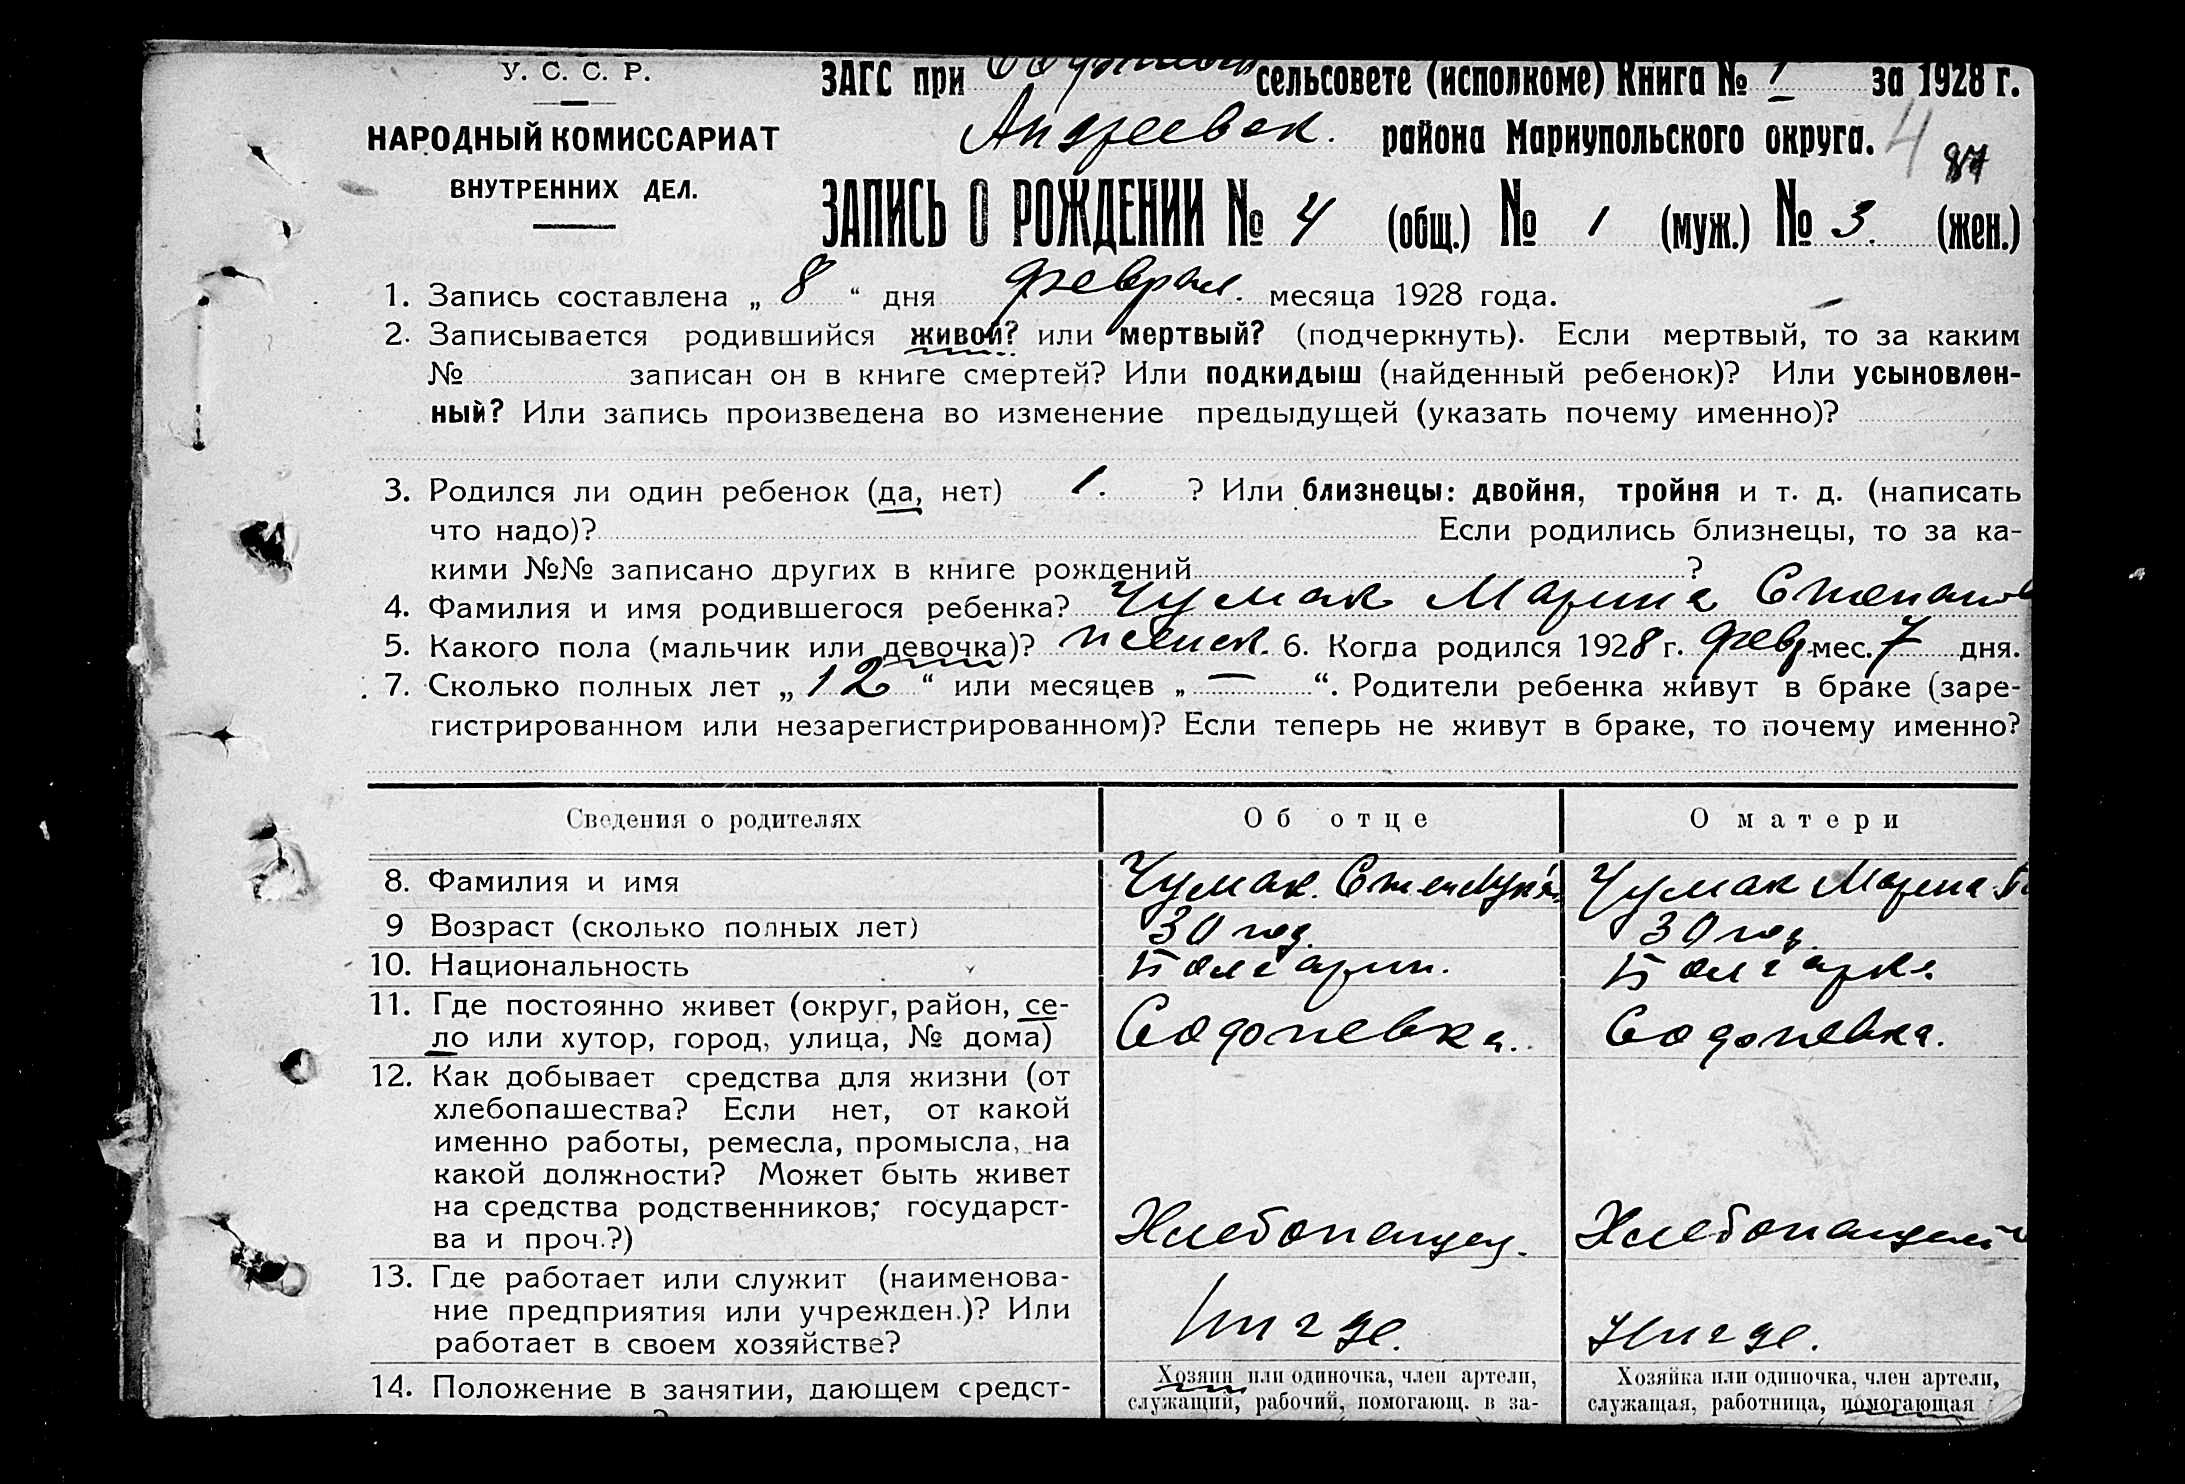 У. С. С. Р.
НАРОДНЫЙ КОМИССАРИАТ
ВНУТРЕННИХ ДЕЛ.
ЗАГС при сельсовете (исполкоме) Книга № 1 за 1928 г.
Андреевск. района Мариупольского округа. 4
87
ЗАПИСЬ О РОЖДЕНИИ № 4 (общ.) № 1 (муж.) № 3. (жен.)
1. Запись составлена „ 8 “ дня феврал. месяца 1928 года.
2. Записывается родившийся живой? или мертвый? (подчеркнуть). Если мертвый, то за каким
№ записан он в книге смертей? Или подкидыш (найденный ребенок)? Или усыновлен-
ный? Или запись произведена во изменение предыдущей (указать почему именно)?
3. Родился ли один ребенок (да, нет) 1. ? Или близнецы: двойня, тройня и т. д. (написать
что надо)? Если родились близнецы, то за ка-
кими №№ записано других в книге рождений ?
4. Фамилия и имя родившегося ребенка? Чумак Марина Степанов
5. Какого пола (мальчик или девочка)? женск. 6. Когда родился 1928 г. февр. мес. 7 дня.
7. Сколько полных лет „ 12 “ или месяцев „ — “. Родители ребенка живут в браке (заре-
гистрированном или незарегистрированном)? Если теперь не живут в браке, то почему именно?
Сведения о родителях Об отце О матери
8. Фамилия и имя Чумак. Чумак Марина
9 Возраст (сколько полных лет) 30 год. 30 год.
10. Национальность Болгарин. Болгарка.
11. Где постоянно живет (округ, район, се-
ло или хутор, город, улица, № дома) Федоровка. Федоровка.
12. Как добывает средства для жизни (от
хлебопашества? Если нет, от какой
именно работы, ремесла, промысла, на
какой должности? Может быть живет
на средства родственников; государст-
ва и проч.?) Хлебопашец.
13. Где работает или служит (наименова-
ние предприятия или учрежден.)? Или
работает в своем хозяйстве? Нигде. Нигде.
14. Положение в занятии, дающем средст-
Хозяин или одиночка, член артели,
служащий, рабочий, помогающ. в за-
Хозяйка или одиночка, член артели,
служащая, работница, помогающая